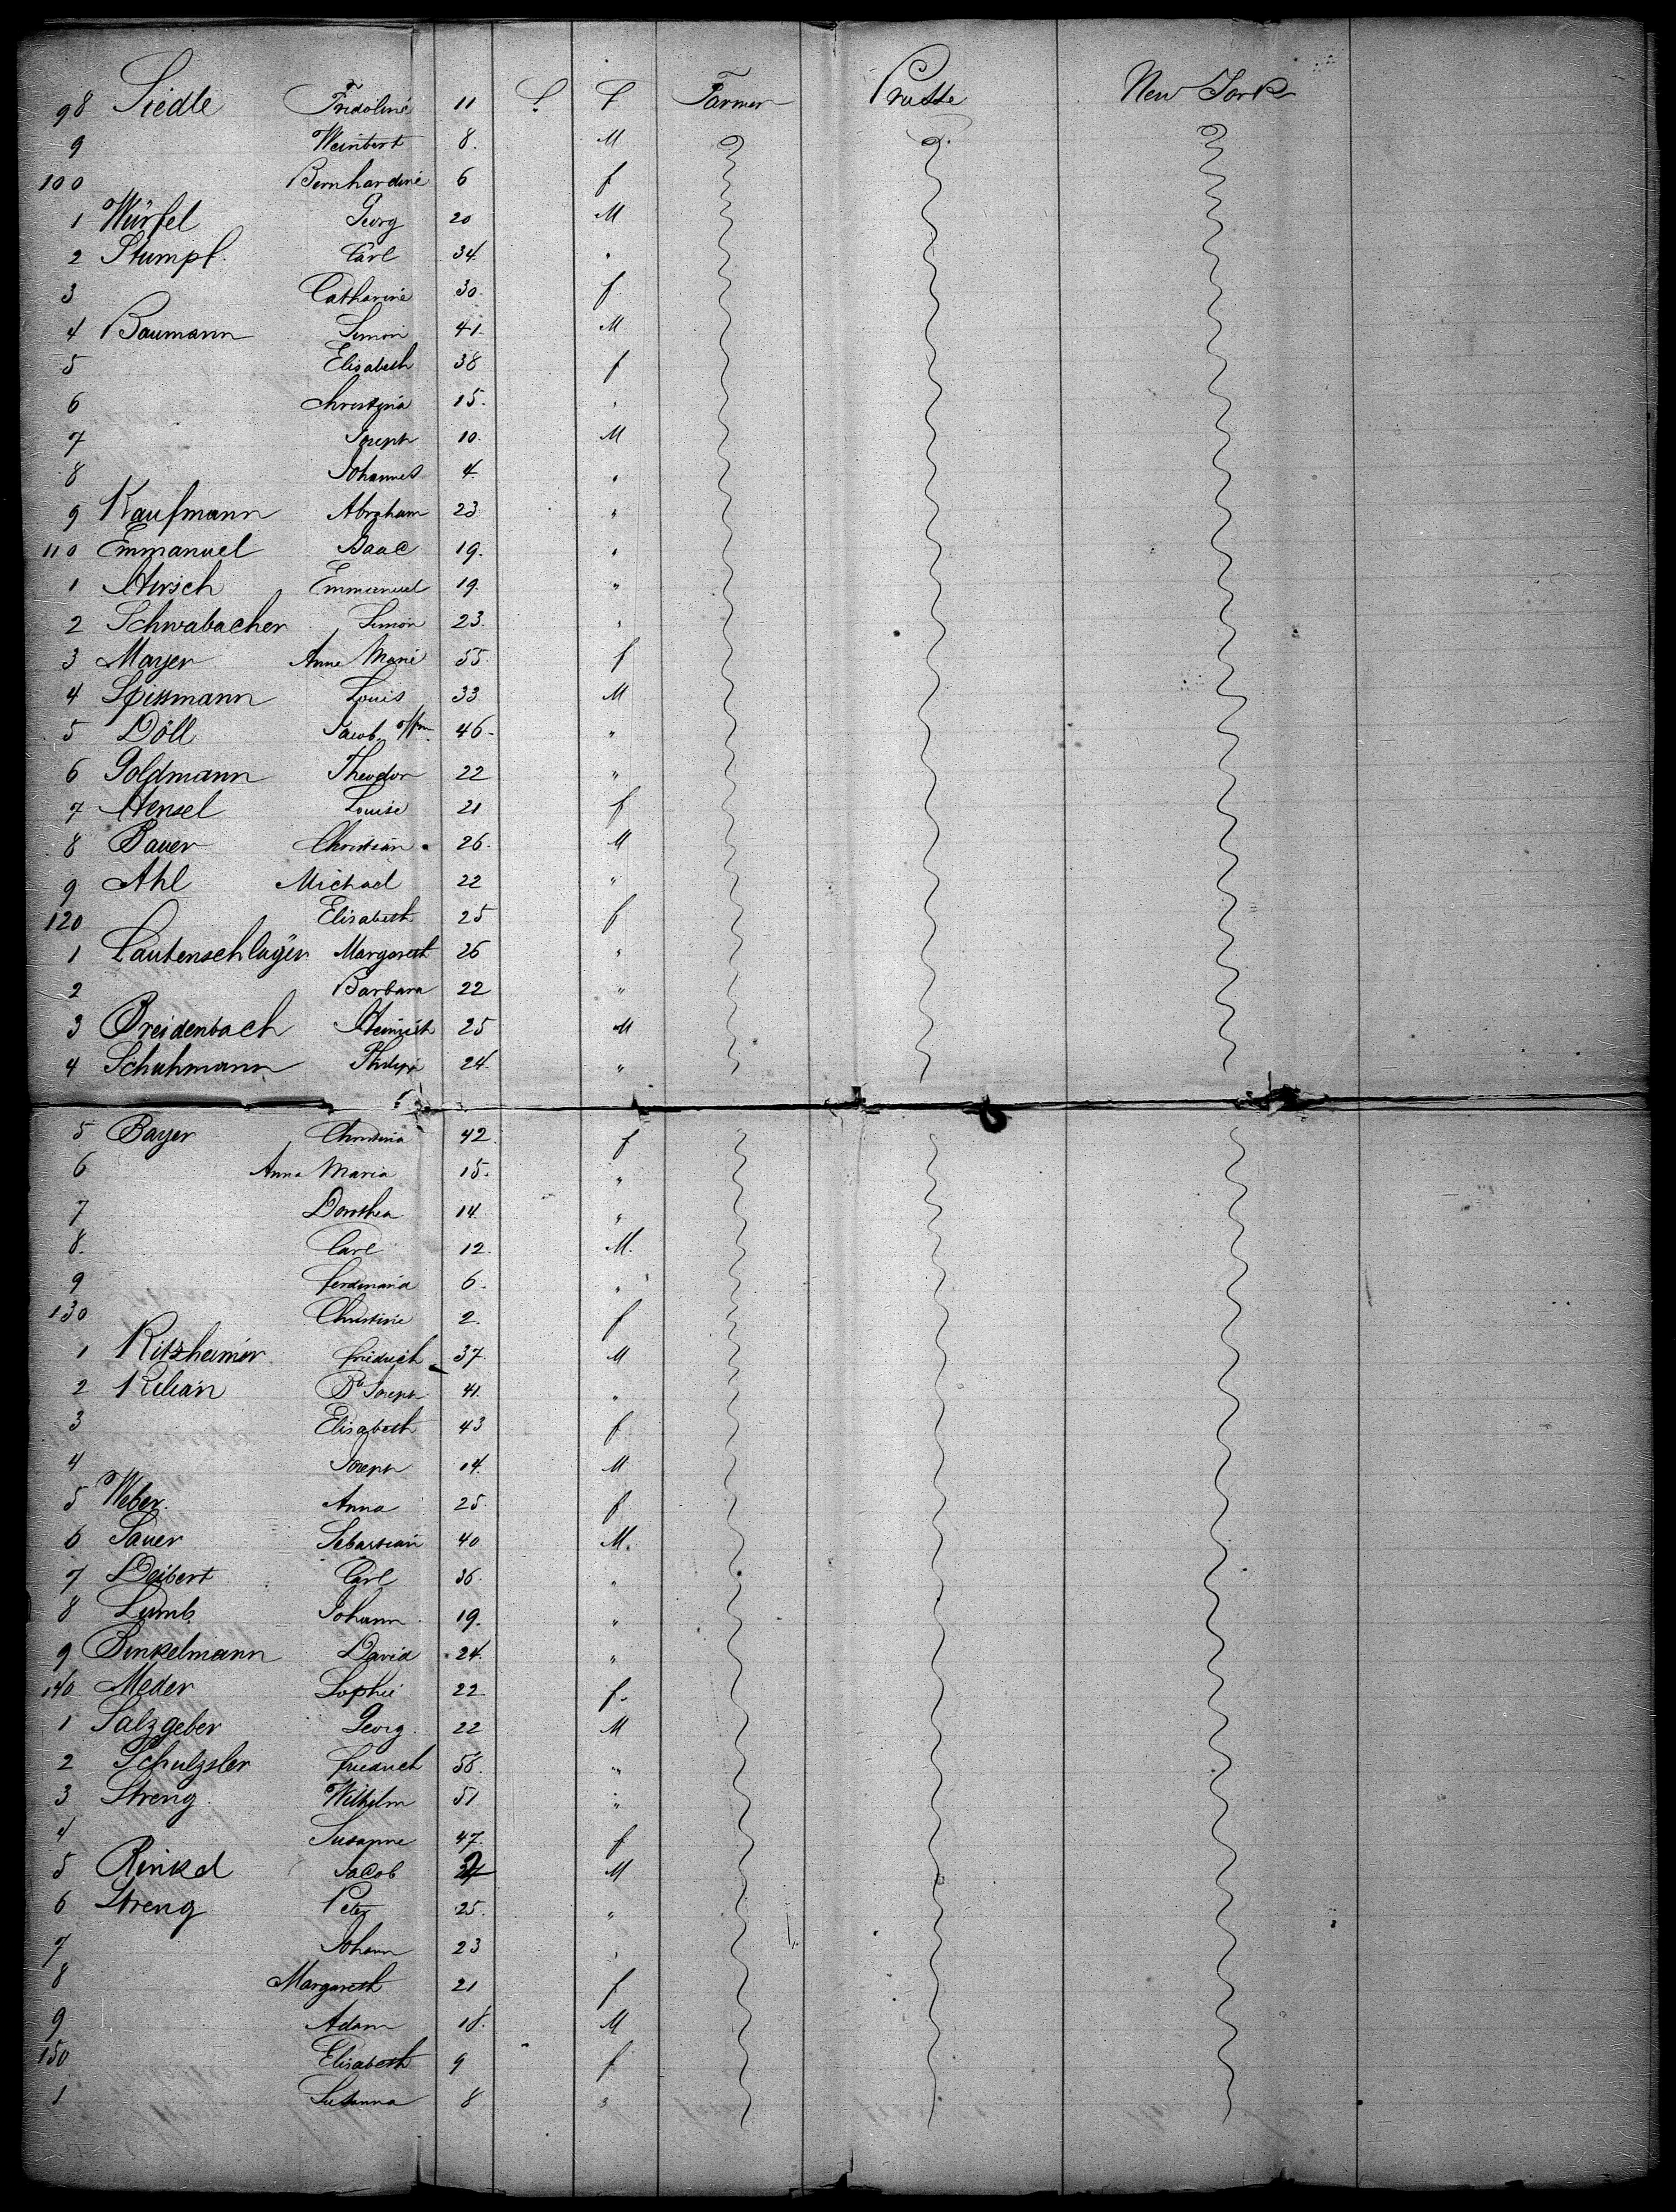 98 Siedle Fridoline 11 f Farmer Prusse New York
9 Weinbert 8. M
100 Bernhardine 6 f
1 Würfel Georg 20 M
2 Stumpf. Carl 34. "
3 Catharine 30. f
4 Baumann Simon 41. M
5 Elisabeth 38 f
6 Christina 15. "
7 Joseph 10. M
8 Johannes 4. "
9 Kaufmann Abraham 23 "
110 Emmanuel Isaac 19. "
1 Hirsch Emmanuel 19. "
2 Schwabacher Simon 23. "
3 Mayer Anne Marie 55. f
4 Louis 33 M
5 Döll Jacob Wm 46- "
6 Goldmann Theodor 22 "
7 Hensel Louise 21 f
8 Bauer Christian 26. M
9 Ahl Michael 22 "
120 Elisabeth 25 f
1 Lautenschlager Margareth 26 "
2 Barbara 22 "
3 Breidenbach Heinrich 25 M
4 Schuhmann Philipp 24. "
5 Bayer Christina 42. f
6 Anna Maria 15. "
7 Dorothea 14. "
8. Carl 12. M.
9 Ferdinand 6. "
130 Christine 2. f
1 Ritzheimer Friedrich 37. M
2 Kilian Joseph 41. "
3 Elisabeth 43 f
4 Joseph 14. M
5 Weber. Anna 25 f
6 Sauer Sebastian 40 M.
7 Deibert Carl 36. "
8 Lumb Johann 19. "
9 Binkelmann David 24. "
140 Meder Sophie 22 f.
1 Salzgeber Georg. 22 M
2 Friedrich 58. "
3 Streng. Wilhelm 51 "
4 Susanne 47. f
5 Rinkel Jacob M
6 Streng Peter 25. "
7 Johann 23 "
8 Margareth 21 f
9 Adam 18. M
150 Elisabeth 9 f
1 Susanna 8 "